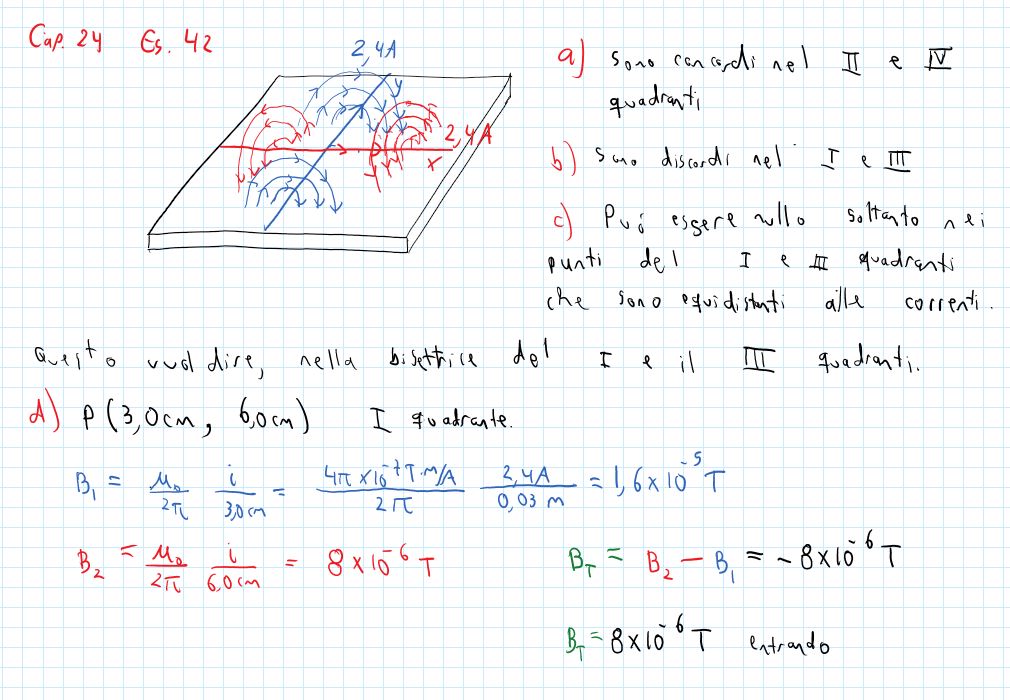 Cap. 24 Es. 42
2,4A
y
2,4A
x
a) sono concordi nel II e IV
quadranti
b) sono discordi nel I e III
c) Può essere nullo soltanto nei
punti del I e III quadranti
che sono equidistanti alle correnti.
Questo vuol dire, nella bisettrice del I e il III quadranti.
d) P(3,0cm, 6,0cm) I quadrante.
B₁ = μ₀/2π i/3,0cm = 4π×10⁻⁷T·m/A/2π 2,4A/0,03 m = 1,6×10⁻⁵ T
B₂ = μ₀/2π i/6,0cm = 8×10⁻⁶ T
B_T = B₂ − B₁ = −8×10⁻⁶ T
B_T = 8×10⁻⁶ T entrando